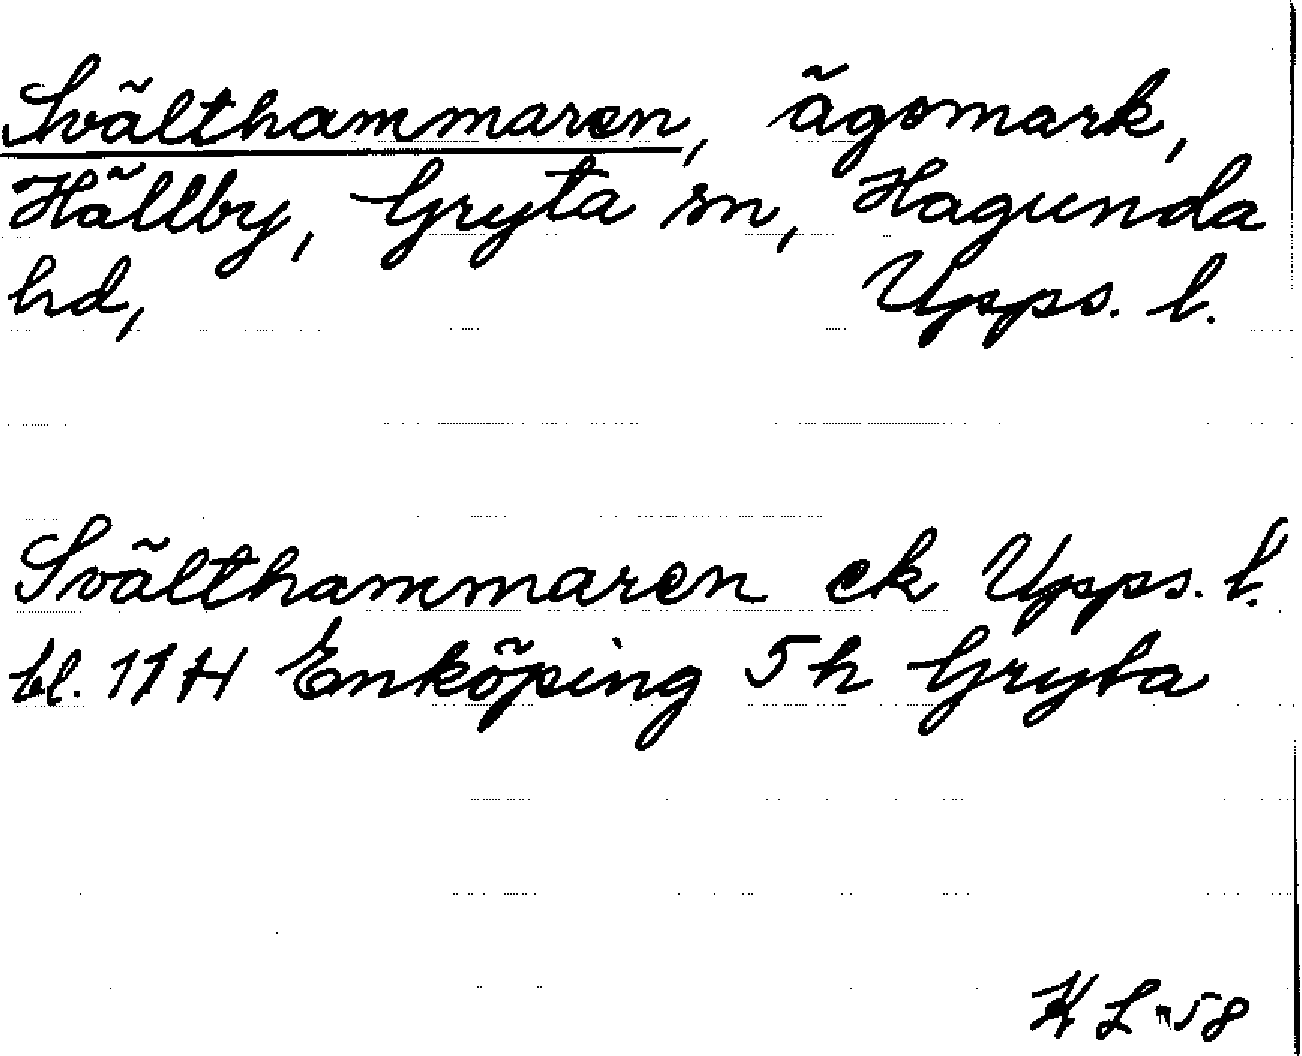 Svälthammaren, ägomark,
Hällby, Gryta sn, Hagunda
hd, Upps. l.
Svälthammaren ek Upps. l.
bl. 11H Enköping 5h Gryta
K L 58